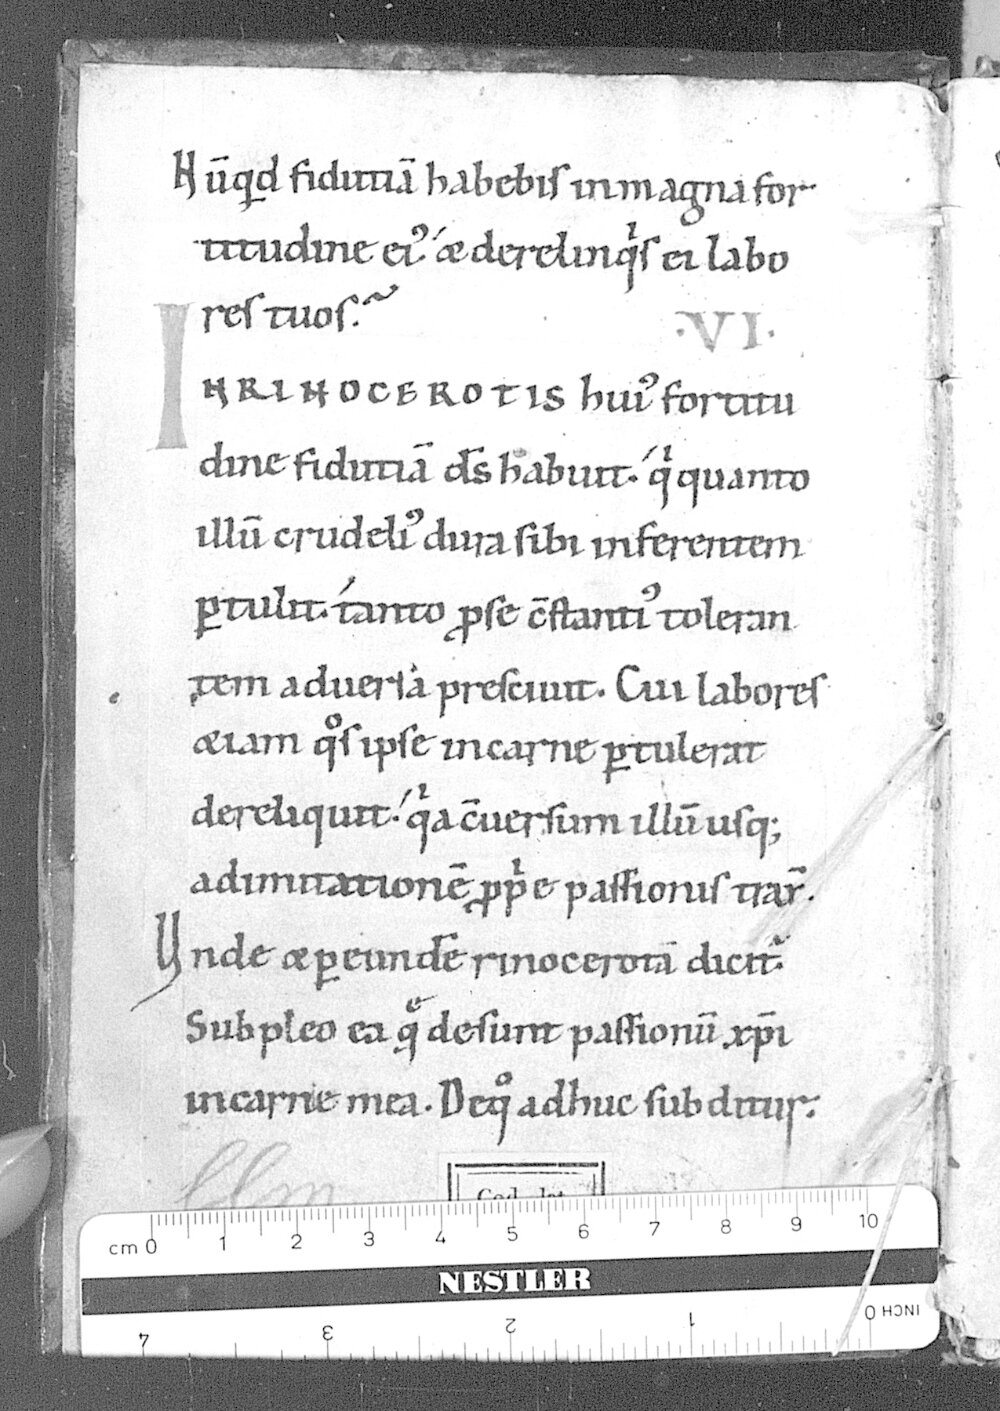 Nūq̣d fidutiā habebis in magna for
titudine ei᾽ & derelinqͥs ei labo
res tuos.
·VI·
IN RINOCEROTIS hui᾽ fortitu
dine fidutiā d̄s habuit. qͥ quanto
illū crudeli᾽ dura sibi inferentem
ꝑtulit. tanto ꝓ se c̄stanti᾽ toleran
tem aduersa presciuit. Cui labores
&iam qͦs ipse in carne ꝑtulerat
dereliquit. qͥa c̄uersum illū usq;
ad imitationē ꝓpͥe passionis trax̄.
Unde & ꝑ eund̄e rinocerotā dicit᷑.
Subpleo ea q̄ desunt passionū xp̄i
in carne mea. De qͦ adhuc subditur.
clm
Cod. lat.
cm 0 1 2 3 4 5 6 7 8 9 10
NESTLER
4 3 2 1 0 INCH